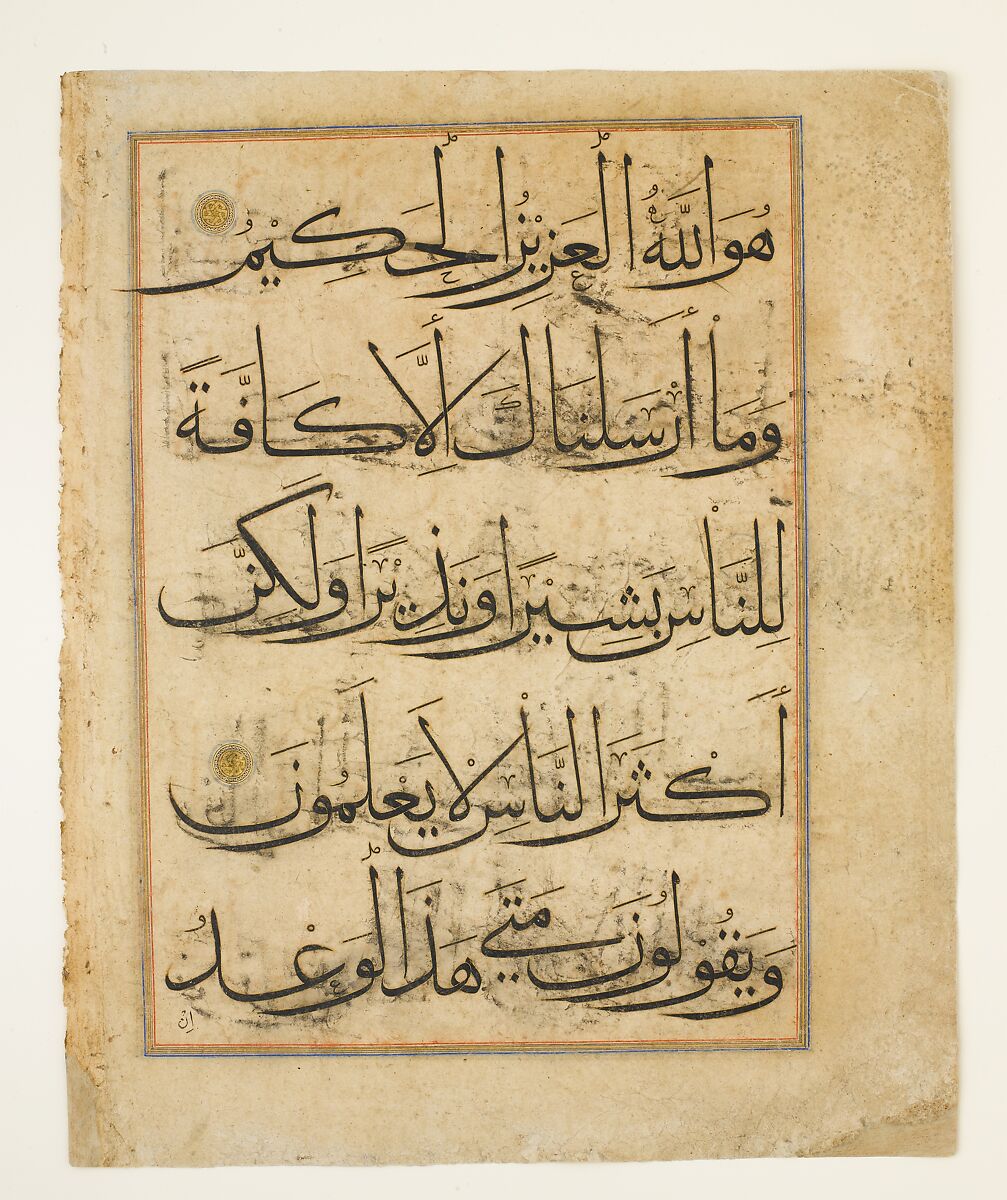 هُوَ اللَّهُ الْعَزِيزُ الْحَكِيمُ
وَمَا أَرْسَلْنَاكَ إِلَّا كَافَّةً
لِلنَّاسِ بَشِيرًا وَنَذِيرًا وَلَكِنَّ
أَكْثَرَ النَّاسِ لَا يَعْلَمُونَ
وَيَقُولُونَ مَتَى هَذَا الْوَعْدُ
إِنْ